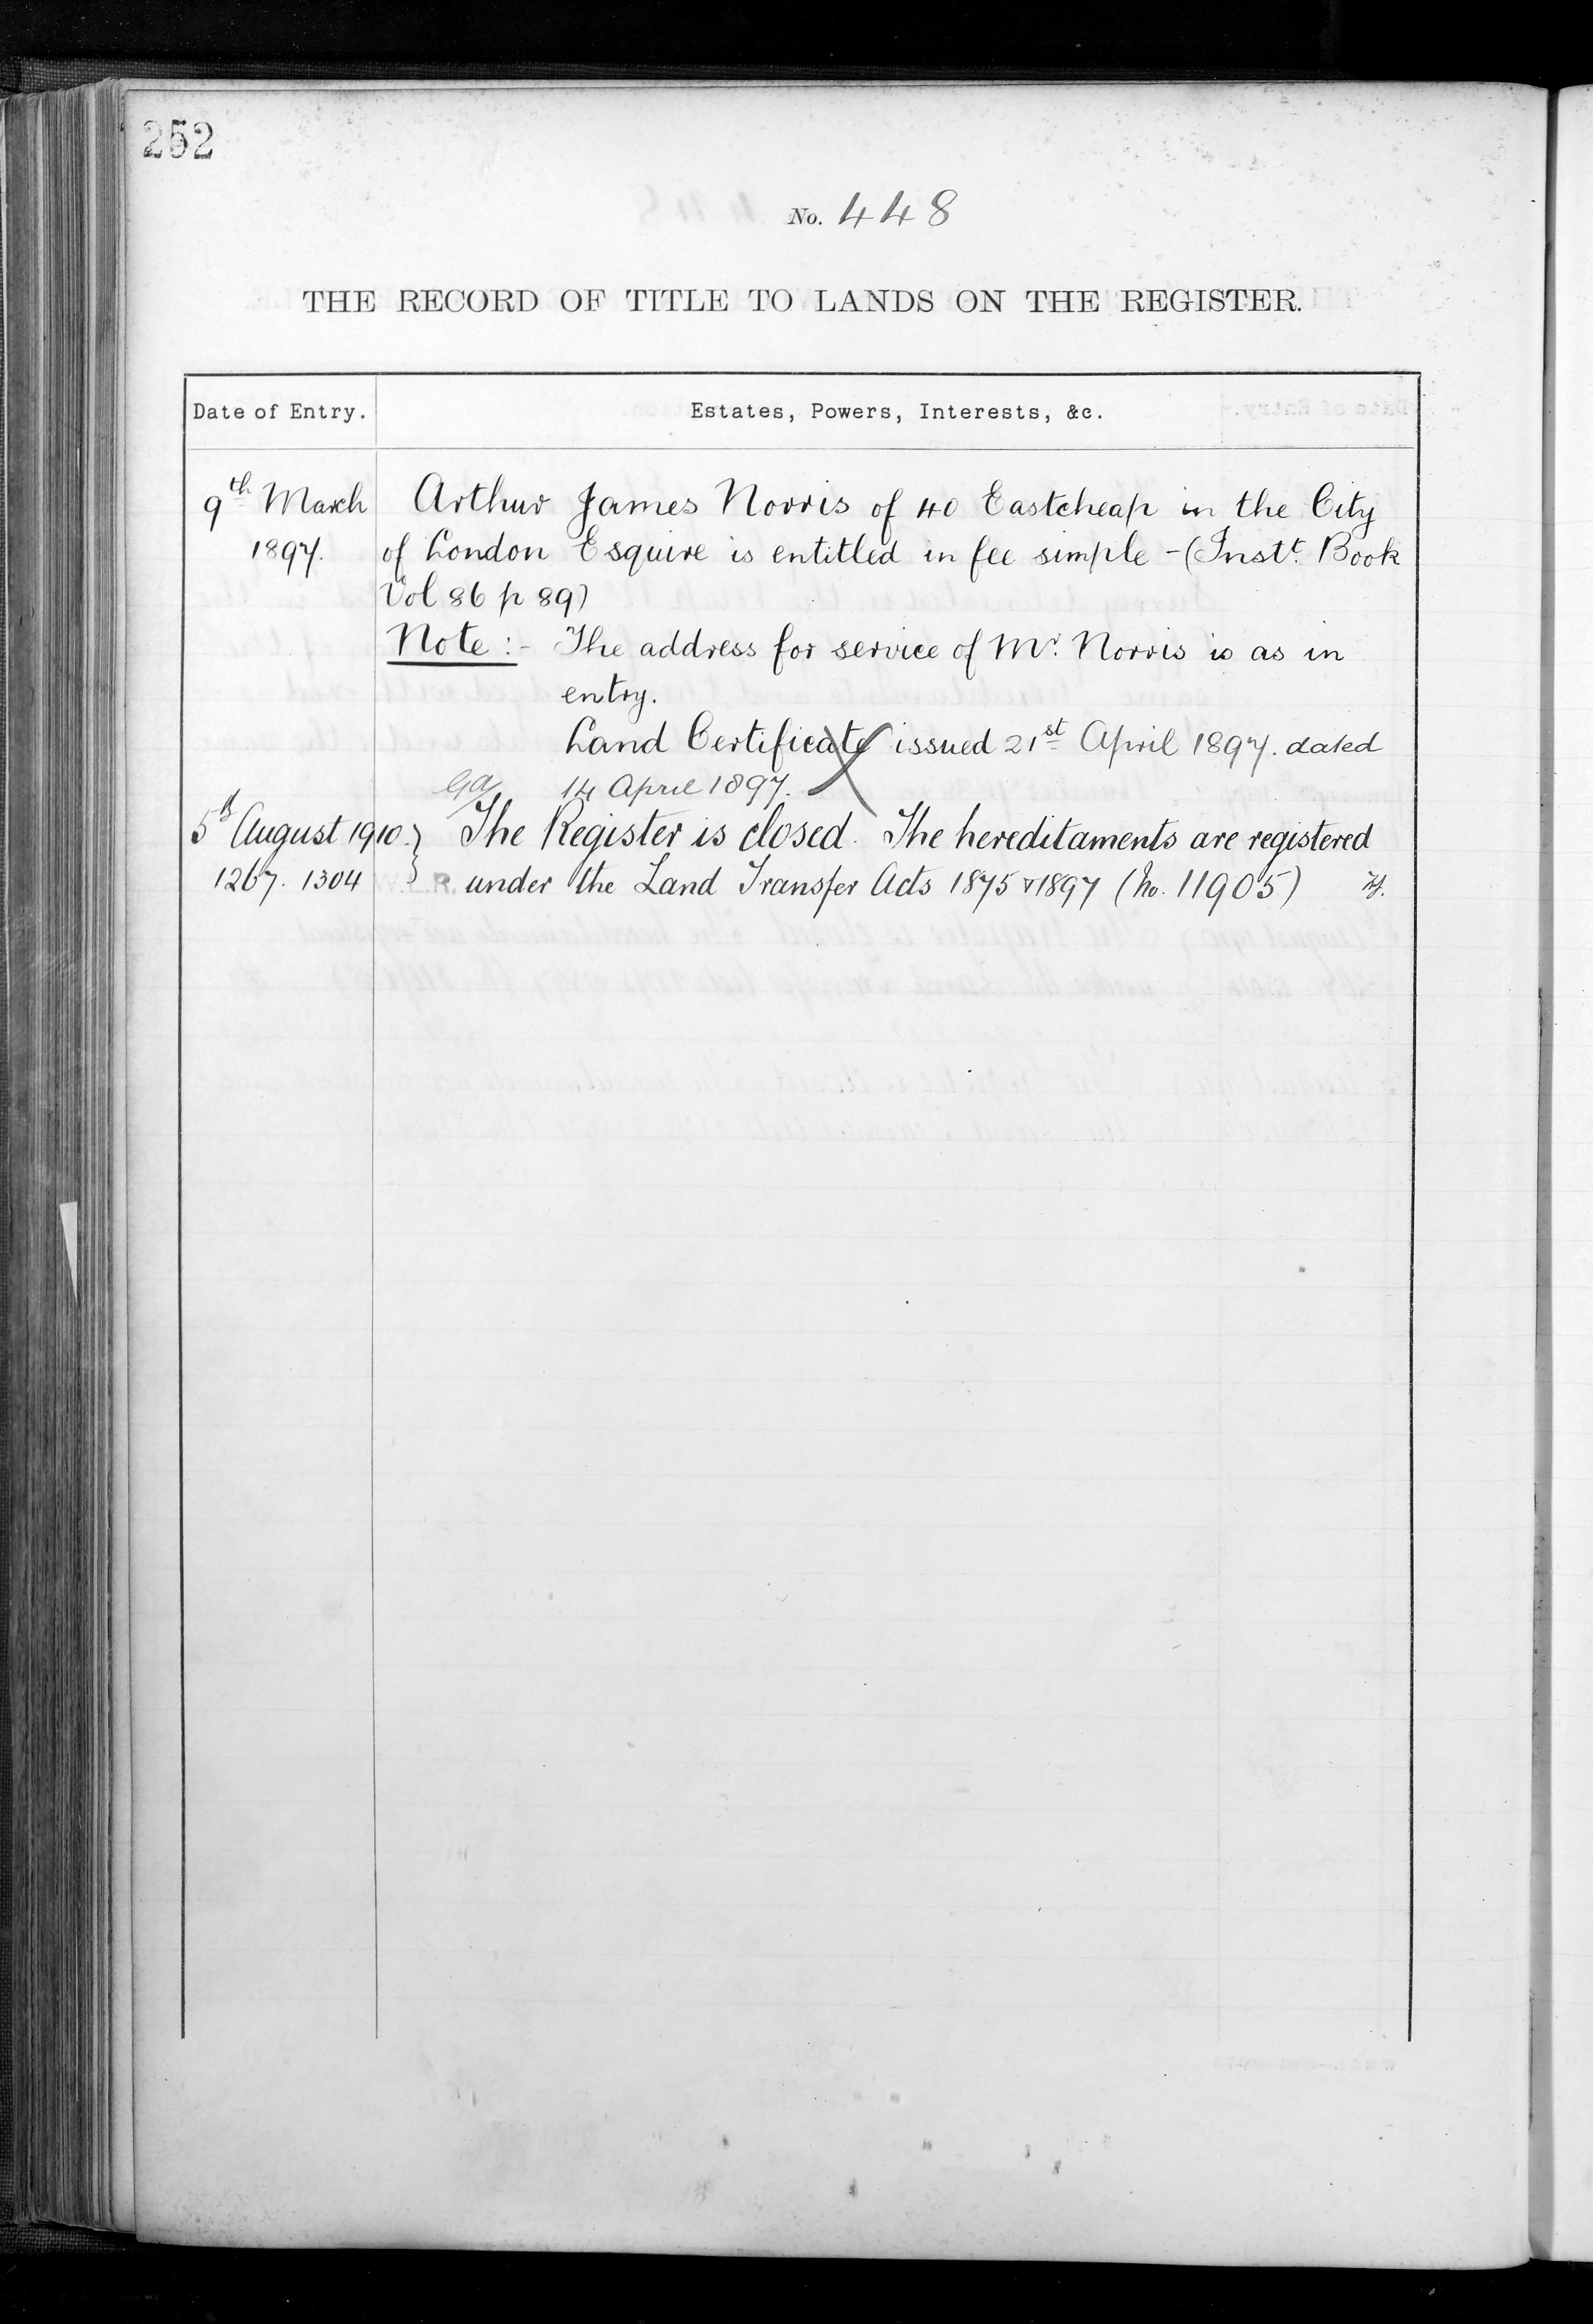 252
No. 448
THE RECORD OF TITLE TO LANDS ON THE REGISTER.
Date of Entry. Estates, Powers, Interests, &c.
9th March Arthur James Norris of 40 Eastcheap in the City
1897. of London Esquire is entitled in fee simple - (Instt. Book
Vol 86 p 89)
Note :- The address for service of Mr. Norris is as in
entry.
Land Certificate issued 21st April 1897. dated
14 April 1897.
5th August 1910. } The Register is closed. The hereditaments are registered
1267. 1304 } under the Land Transfer Acts 1875 & 1897 (No. 11905)